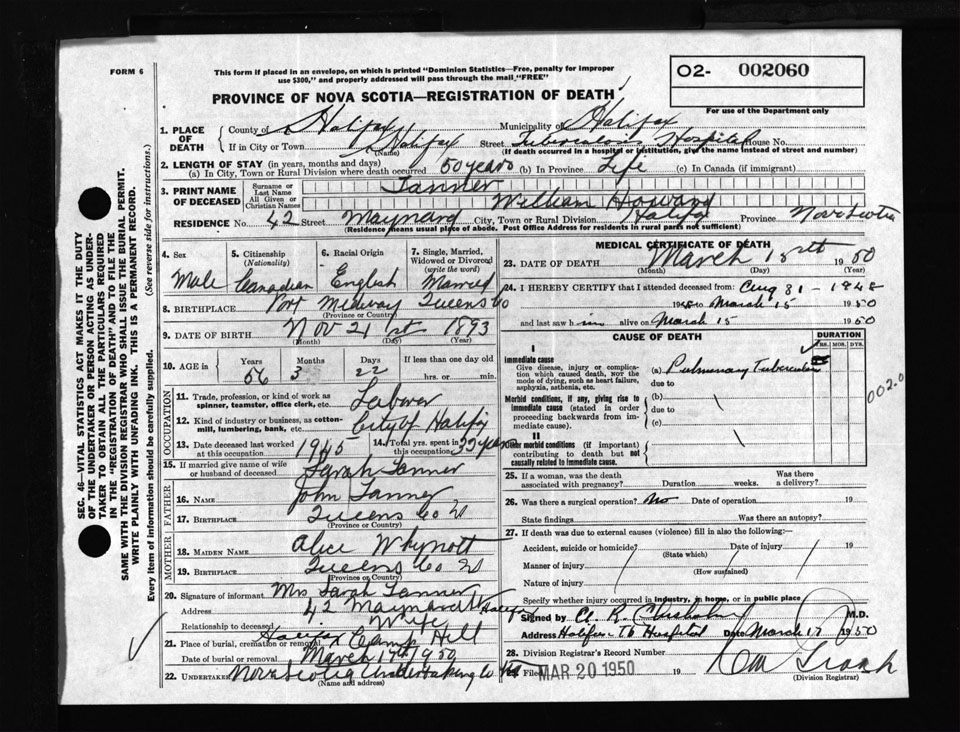 FORM 6
This form if placed in an envelope, on which is printed "Dominion Statistics—Free, penalty for improper
use $300," and properly addressed will pass through the mail "FREE"
02- 002060
For use of the Department only
PROVINCE OF NOVA SCOTIA—REGISTRATION OF DEATH
1. PLACE OF DEATH
County of Halifax Municipality of Halifax
If in City or Town Halifax (Name) Street Hospital House No.
(If death occurred in a hospital or institution, give the name instead of street and number)
2. LENGTH OF STAY (in years, months and days)
(a) In City, Town or Rural Division where death occurred 50 years (b) In Province Life (c) In Canada (if immigrant)
3. PRINT NAME OF DECEASED
Surname or Last Name Tanner
All Given or Christian Names William Howard
RESIDENCE No. 42 Street Maynard City, Town or Rural Division Halifax Province Nova Scotia
(Residence means usual place of abode. Post Office Address for residents in rural parts not sufficient)
4. Sex Male
5. Citizenship (Nationality) Canadian
6. Racial Origin English
7. Single, Married, Widowed or Divorced (write the word) Married
8. BIRTHPLACE Port Medway Queens Co
(Province or Country)
9. DATE OF BIRTH Nov 21st 1893
(Month) (Day) (Year)
10. AGE in Years 56 Months 3 Days 22 If less than one day old hrs. or min.
OCCUPATION
11. Trade, profession, or kind of work as spinner, teamster, office clerk, etc. Laborer
12. Kind of industry or business, as cotton-mill, lumbering, bank, etc. City of Halifax
13. Date deceased last worked at this occupation 1945
14. Total yrs. spent in this occupation 35 years
15. If married give name of wife or husband of deceased Sarah Tanner
FATHER
16. NAME John Tanner
17. BIRTHPLACE Queens Co NS
(Province or Country)
MOTHER
18. MAIDEN NAME Alice Whynott
19. BIRTHPLACE Queens Co NS
(Province or Country)
20. Signature of informant Mrs Sarah Tanner
Address 42 Maynard St Halifax
Relationship to deceased Wife
21. Place of burial, cremation or removal Halifax Camp Hill
Date of burial or removal March 17th 1950
22. UNDERTAKER Nova Scotia Undertaking Co
(Name and address)
MEDICAL CERTIFICATE OF DEATH
23. DATE OF DEATH March 15th 1950
(Month) (Day) (Year)
24. I HEREBY CERTIFY that I attended deceased from: Aug 31 - 1948
1948 to March 15 1950
and last saw him alive on March 15 1950
CAUSE OF DEATH
DURATION
YRS. MOS. DYS.
I
Immediate cause
Give disease, injury or complication which caused death, NOT the mode of dying, such as heart failure, asphyxia, asthenia, etc.
(a) Pulmonary Tuberculosis
due to
Morbid conditions, if any, giving rise to immediate cause (stated in order proceeding backwards from immediate cause).
(b)
due to
(c)
II
Other morbid conditions (if important) contributing to death but not causally related to immediate cause.
002.0
25. If a woman, was the death associated with pregnancy? Duration weeks. Was there a delivery?
26. Was there a surgical operation? No Date of operation 19
State findings Was there an autopsy?
27. If death was due to external causes (violence) fill in also the following:
Accident, suicide or homicide? Date of injury 19
(State which)
Manner of injury
(How sustained)
Nature of injury
Specify whether injury occurred in industry, in home, or in public place
Signed by M.D.
Address Halifax TB Hospital Date March 17 1950
28. Division Registrar's Record Number
Filed MAR 20 1950 19
(Division Registrar)
SEC. 46—VITAL STATISTICS ACT MAKES IT THE DUTY
OF THE UNDERTAKER OR PERSON ACTING AS UNDER-
TAKER TO OBTAIN ALL THE PARTICULARS REQUIRED
IN THE "REGISTRATION OF DEATH" AND TO FILE THE
SAME WITH THE DIVISION REGISTRAR WHO SHALL ISSUE THE BURIAL PERMIT.
WRITE PLAINLY WITH UNFADING INK. THIS IS A PERMANENT RECORD.
Every item of information should be carefully supplied. (See reverse side for instructions.)